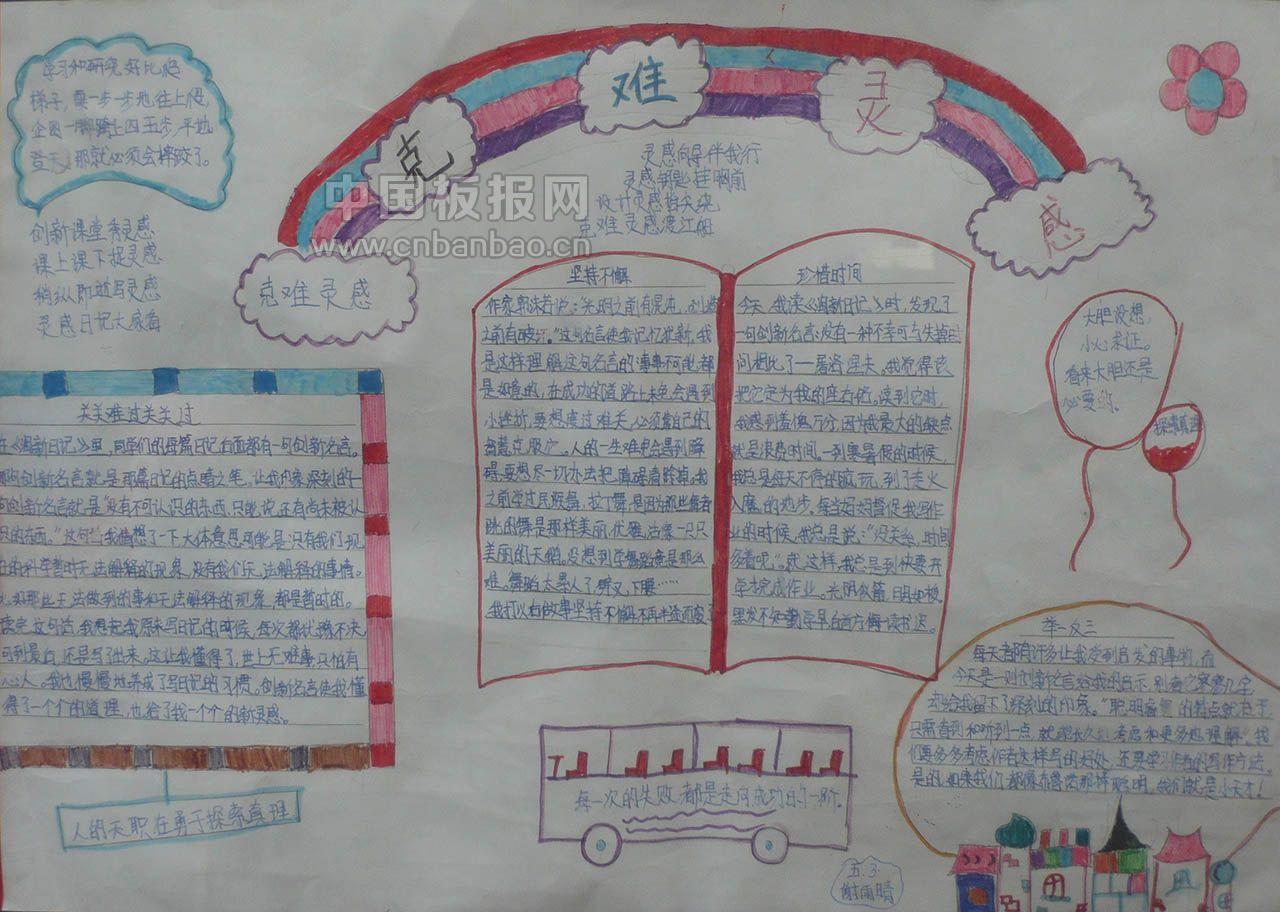 学习和研究好比爬
梯子,要一步一步地往上爬,
企图一脚跨上四五步,平地
登天,那就必须会摔跤了。
创新课堂秀灵感
课上课下捉灵感
稍纵即逝写灵感
灵感日记大家看
克
难
灵
感
克难灵感
中国板报网
www.cnbanbao.cn
灵感向导伴我行
灵感钥匙挂胸前
设计灵感指尖绕
克难灵感渡江船
关关难过关关过
里,同学们的每篇日记后面都有一句创新名言。
创新名言就是那篇日记的点睛之笔,让我印象深刻的一
创新名言就是“没有不可认识的东西,只能说,还有尚未被认
我猜想了一下大体意思可能是:只有我们现
的科学暂时无法解释的现象,没有我们无法解释的事情。
那些无法做到的事和无法解释的现象,都是暂时的。
读完这句话,我想起我原来写日记的时候,每次都犹豫不决,
可到最后,还是写了出来。这让我懂得了,世上无难事只怕有
心人。我也慢慢地养成了写日记的习惯。创新名言使我懂
得了一个个的道理,也给了我一个个的新灵感。
人的天职在勇于探索真理
坚持不懈
作家郭沫若说:光明之前有混沌,创造
之前有破坏。”这句名言使我记忆犹新,我
是这样理解这句名言的:事事不可能都
是如意的,在成功的道路上未免会遇到
小挫折,要想度过难关,必须靠自己的
智慧克服它。人的一生难免会遇到障
碍,要想尽一切办法把障碍清除掉。我
之前学过民族舞、拉丁舞,是因为那些舞者
跳的舞是那样美丽,优雅,活像一只只
美丽的天鹅。没想到学舞蹈竟是那么
难。舞蹈太累人了,劈叉、下腰……
我打以后做事坚持不懈,不再半途而废了
珍惜时间
时,发现了
一句创新名言:没有一种不幸可与失掉时
间相比了——屠洛涅夫。我觉得该
把它定为我的座右铭。读到它时,
我感到羞愧万分,因为我最大的缺点
就是浪费时间。一到寒暑假的时候,
我总是每天不停的疯玩,到了走火
入魔的地步。每当妈妈督促我写作
业的时候,我总是说:“没关系,时间
多着呢。”就这样,我总是到快要开
学才完成作业。光阴似箭,日月如梭。
黑发不知勤学早,白首方悔读书迟。
大胆设想,
小心求证。
看来大胆还是
必要的。
探索真理
举一反三
每天都有许多让我受到启发的事物,而
今天是一则创新名言给我的启示,别看它寥寥几字,
却给我留下了深刻的印象。“聪明睿智的特点就在于,
只需看到和听到一点就能长久地考虑和更多地理解”。我
们要多多考虑作者这样写的好处,还要学习作者的写作方法。
是的,如果我们都像布鲁诺那样聪明,我们就是小天才!
每一次的失败,都是走向成功的一阶。
五.3.
谢雨晴